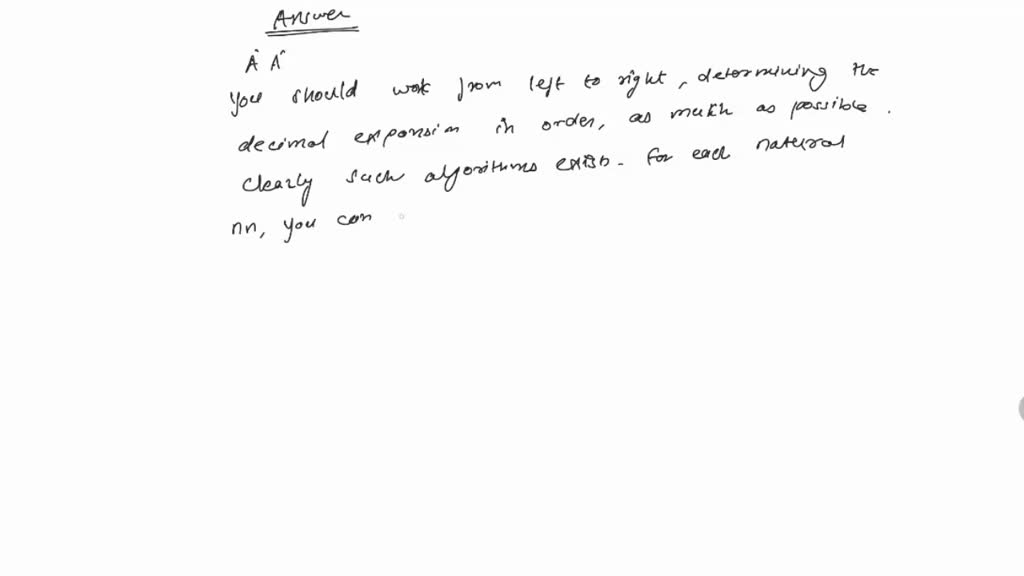 Answer
You should work from left to right, determining the
decimal expansion in order, as much as possible.
Clearly such algorithms exist. For each natural
nn, you can